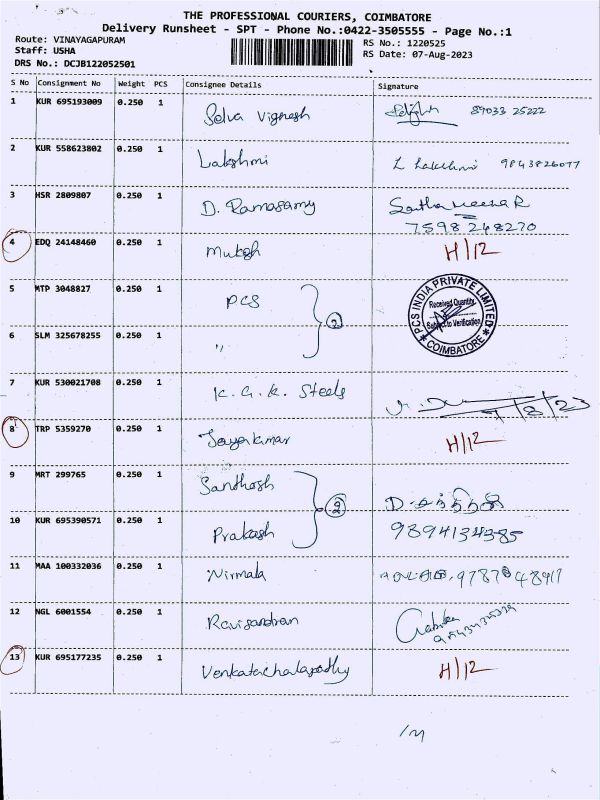 THE PROFESSIONAL COURIERS, COIMBATORE
Delivery Runsheet - SPT - Phone No.:0422-3505555 - Page No.:1
Route: VINAYAGAPURAM
Staff: USHA
DRS No.: DCJB122052501
RS No.: 1220525
RS Date: 07-Aug-2023
S No Consignment No Weight PCS Consignee Details Signature
1 KUR 695193009 0.250 1 Selva Vignesh 89033 25222
2 KUR 558623802 0.250 1 Lakshmi L Lakshmi 9843826077
3 HSR 2809807 0.250 1 D. Ramasamy
7598248270
4 EDQ 24148460 0.250 1 Mukesh H/12
5 MTP 3048827 0.250 1 PCS
2
PCS INDIA PRIVATE LIMITED
Received Quantity
Subject to Verification
COIMBATORE
6 SLM 325678255 0.250 1 "
7 KUR 530021708 0.250 1 K. G. K. Steels
8 TRP 5359270 0.250 1 Jayakumar H/12
9 MRT 299765 0.250 1 Santhosh
2
10 KUR 695390571 0.250 1 Prakash 9894134385
11 MAA 100332036 0.250 1 Nirmala
12 NGL 6001554 0.250 1 Ravisandran
13 KUR 695177235 0.250 1 Venkatachalapathy H/12